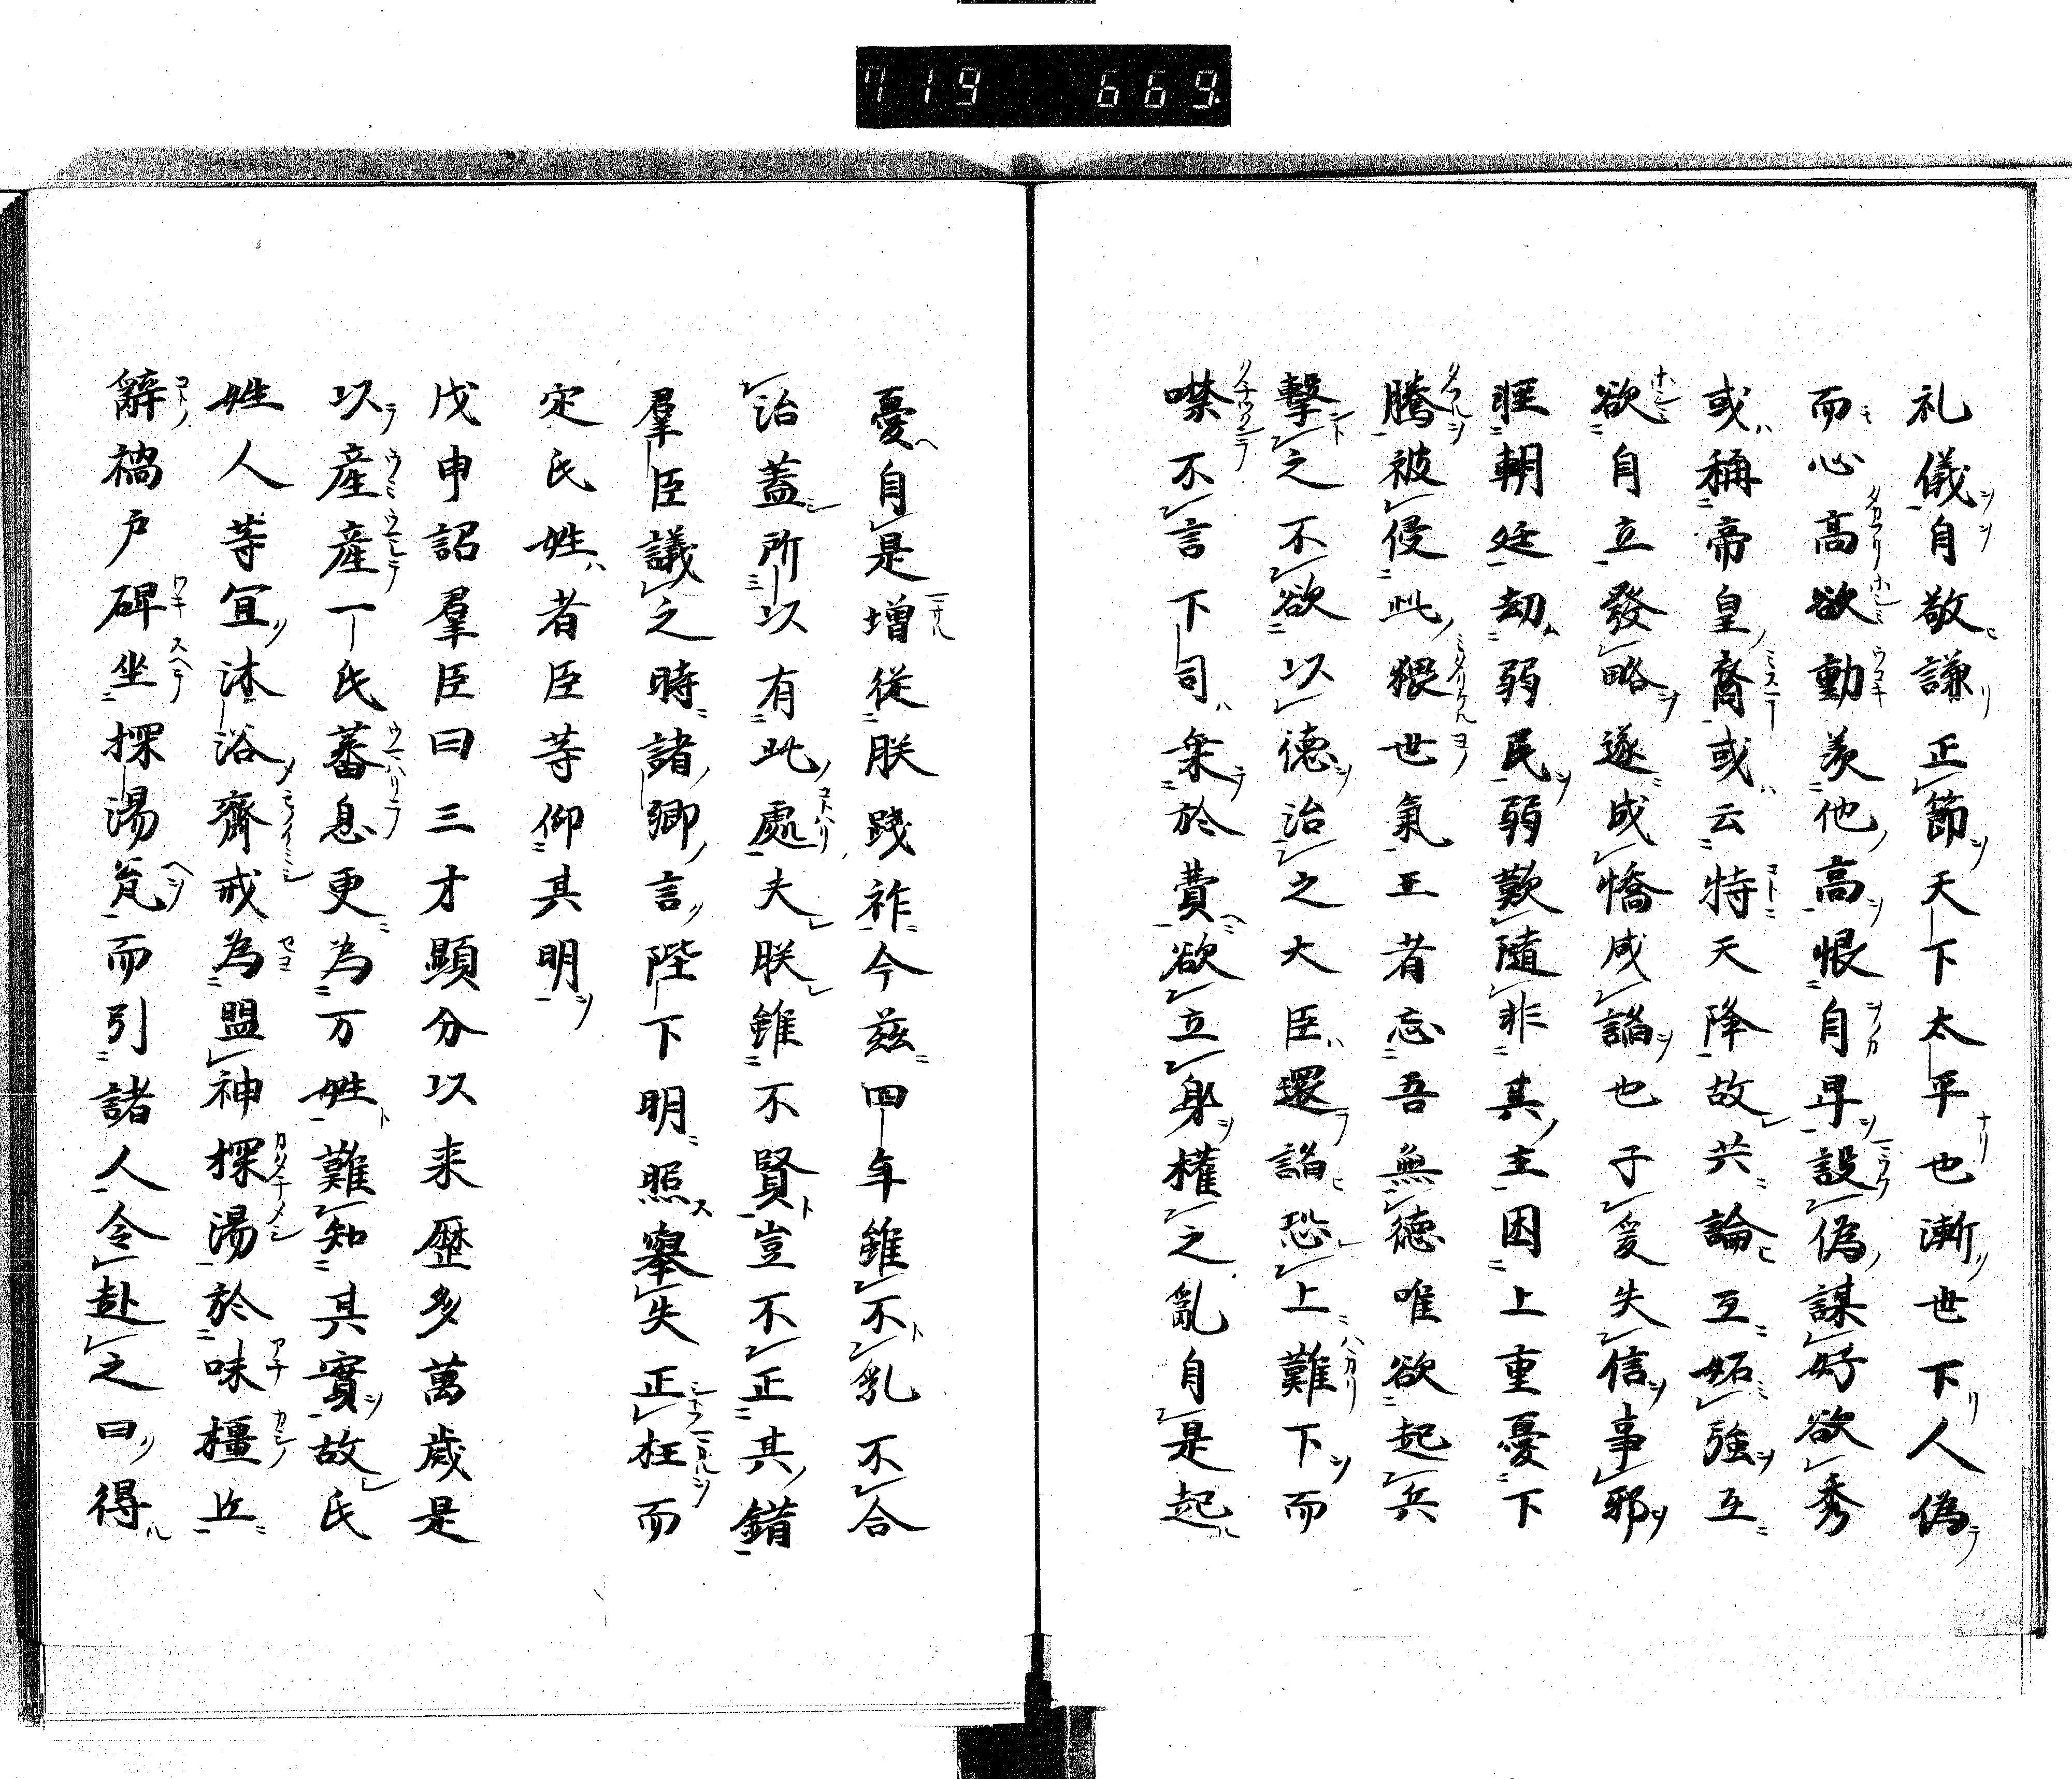 719 669.
礼儀自敬謙正節天下太平也漸世下人偽
而心高欲動羨他高恨自卑設偽謀好欲秀
或稱帝皇裔或云特天降故共論互妬強互
欲自立發略遂成憍咸諂也于爰失信事邪
朝廷劫弱民弱歎隨非其主因上重憂下
騰被侵此猥世氣王者忘吾無德唯欲起兵
擊之不欲以德治之大臣還諂恐上難下而
噤不言下司衆於費欲立身權之亂自是起
憂自是增從朕踐祚今茲四年雖不乱不合
治蓋所以有此處夫朕雖不賢豈不正其錯
羣臣議之時諸卿言陛下明照舉失正枉而
定氏姓者臣等仰其明
戊申詔羣臣曰三才顯分以来歷多萬歲是
以産産一氏蕃息更為万姓難知其實故氏
姓人等宜沐浴齋戒為盟神探湯於味橿丘
辭禍戸碑坐探湯瓮而引諸人令赴之曰得